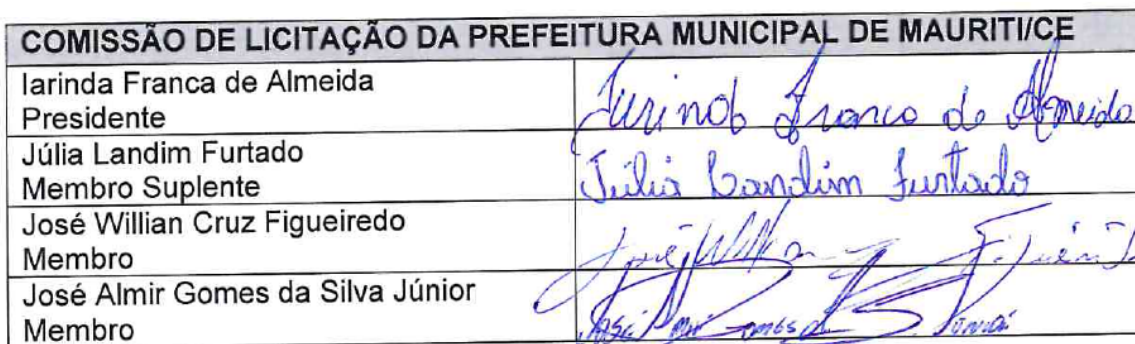 COMISSÃO DE LICITAÇÃO DA PREFEITURA MUNICIPAL DE MAURITI/CE
Iarinda Franca de Almeida
Presidente
Iarinda Franca de Almeida
Júlia Landim Furtado
Membro Suplente
Júlia Landim Furtado
José Willian Cruz Figueiredo
Membro
José Almir Gomes da Silva Júnior
Membro